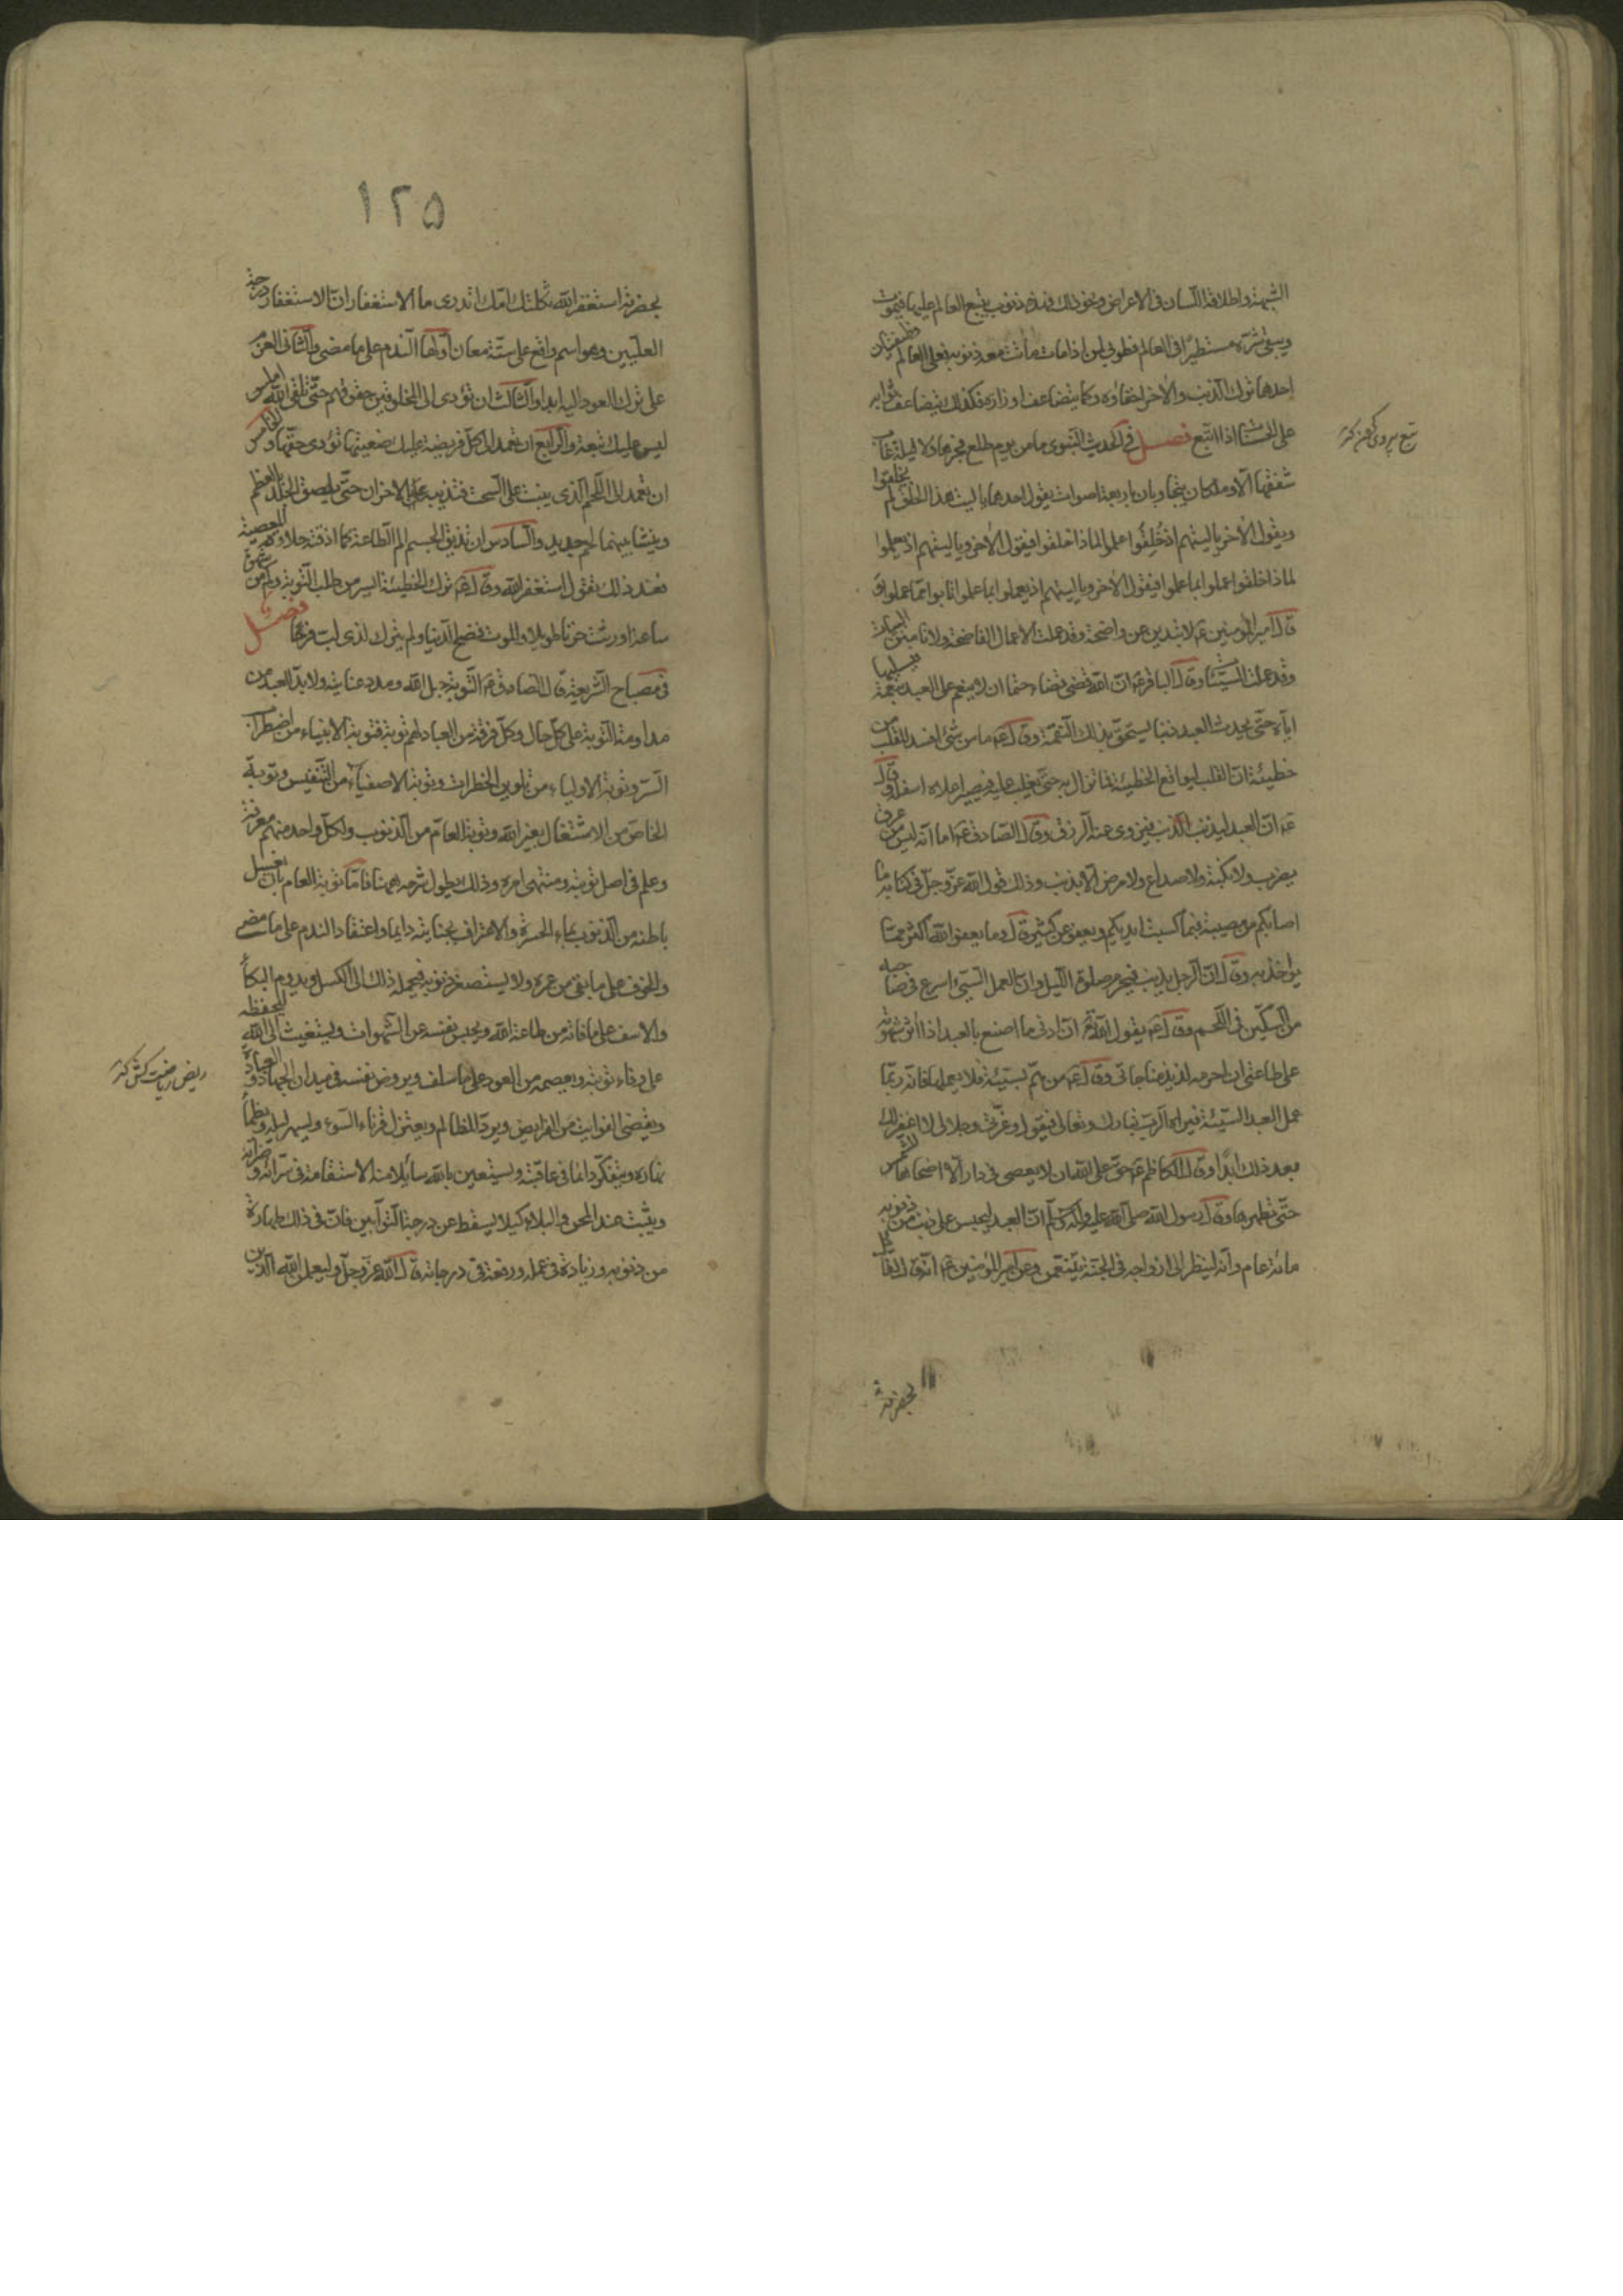 الشبهة واطلاقه اللسان في الاعراض ونحو ذلك فهذه ذنوب يتبع العالم عليها فيموت
ويبقى شره مستطيرا في العالم فطوبى لمن اذا مات ماتت معه ذنوبه فعلى العالم وظيفتان
احدهما ترك الذنب والاخر اخفاؤه وكما يتضاعف اوزاره فكذلك يتضاعف ثوابه
على الحسنات اذا اتبع فصل في الحديث النبوى ما من يوم طلع فجرها ولا ليلة غاب
شفقها الا وملكان يتجاوبان باربعة اصوات يقول احدهما يا ليت هذا الخلق لم يخلقوا
ويقول الاخر يا ليتهم اذ خلقوا علموا لماذا خلقوا فيقول الاخر ويا ليتهم اذ لم يعلموا
لماذا خلقوا عملوا بما علموا فيقول الاخر ويا ليتهم اذ لم يعملوا بما علموا تابوا مما عملوا و
قال امير المؤمنين عم لا تبدين عن واضحة وقد عملت الاعمال الفاضحة ولا تامنن البيات
وقد عملت السيئات وقال الباقر عم ان الله قضى قضاء حتما ان لا ينعم على العبد بنعمة فيسلبها
اياه حتى يحدث العبد ذنبا يستحق بذلك النقمة وقال عم ما من شئ افسد للقلب من
خطيئة ان القلب ليواقع الخطيئة فما تزال به حتى تغلب عليه فيصير اعلاه اسفله وقال
عم ان العبد ليذنب الذنب فيزوى عنه الرزق وقال الصادق عم اما انه ليس من عرق
يضرب ولا نكبة ولا صداع ولا مرض الا بذنب وذلك قول الله عز وجل في كتابه ما
اصابكم من مصيبة فبما كسبت ايديكم ويعفو عن كثير قال وما يعفو الله اكثر مما
يؤاخذ به وقال ان الرجل يذنب فيحرم صلوة الليل وان العمل السيئ اسرع في صاحبه
من السكين في اللحم وقال عم يقول الله تم ان ادنى ما اصنع بالعبد اذا اثر شهوته
على طاعتى ان احرمه لذيذ مناجاتى وقال عم من هم بسيئة فلا يعملها فانه ربما
عمل العبد السيئة فيراه الرب تبارك وتعالى فيقول وعزتى وجلالى لا اغفر لك
بعد ذلك ابدا وقال الكاظم عم حق على الله ان لا يعصى في دار الا اضحاها للشمس
حتى تطهرها وقال رسول الله صلى الله عليه وآله وسلم ان العبد ليحبس على ذنب من ذنوبه
مائة عام وانه لينظر الى ازواجه في الجنة يتنعمن وعن امير المؤمنين عم انه قال لقائل
بحضرته
تبع پيروى كردن
١٢٥
بحضرته استغفر الله ثكلتك امك اتدرى ما الاستغفار ان الاستغفار درجة
العليين وهو اسم واقع على ستة معان اولها الندم على ما مضى والثانى العزم
على ترك العود اليه ابدا والثالث ان تؤدى الى المخلوقين حقوقهم حتى تلقى الله املس
ليس عليك تبعة والرابع ان تعمد الى كل فريضة عليك ضيعتها تؤدى حقها والخامس
ان تعمد الى اللحم الذى ينبت على السحت فتذيبه بالاحزان حتى يلصق الجلد بالعظم
وينشا بينهما لحم جديد والسادس ان تذيق الجسم الم الطاعة كما اذقته حلاوة المعصية
فعند ذلك تقول استغفر الله وقال عم ترك الخطيئة ايسر من طلب التوبة وكم من شهوة
ساعة اورثت حزنا طويلا والموت فضح الدنيا ولم يترك لذى لب فرحا فصل
في مصباح الشريعة قال الصادق عم التوبة حبل الله ومدد عنايته ولا بد للعبد من
مداومة التوبة على كل حال وكل فرقة من العباد لهم توبة فتوبة الانبياء من اضطراب
السر وتوبة الاولياء من تلوين الخطرات وتوبة الاصفياء من التنفيس وتوبة
الخاص من الاشتغال بغير الله وتوبة العام من الذنوب ولكل واحد منهم معرفة
وعلم في اصل توبته ومنتهى امره وذلك يطول شرحه هيهنا فاما توبة العام بان يغسل
باطنه من الذنوب بماء الحسرة والاعتراف بجنايته دايما واعتقاد الندم على ما مضى
والخوف على ما بقى من عمره ولا يستصغر ذنوبه فيحمله ذلك الى الكسل ويديم البكاء
والاسف على ما فاته من طاعة الله ويحبس نفسه عن الشهوات ويستغيث الى الله ليحفظه
على وفاء توبته ويعصمه من العود على ما سلف ويروض نفسه في ميدان الجهاد والعبادة
ويقضى الفوايت من الفرايض ويرد المظالم ويعتزل قرناء السوء ويسهر ليله ويظمأ
نهاره ويتفكر دائما في عاقبته ويستعين بالله سائلا منه الاستقامة في سرائه وضرائه
ويثبت عند المحن والبلاء كيلا يسقط عن درجة التوابين فان في ذلك طهارة
من ذنوبه وزيادة في عمله ورفعة في درجاته قال الله عز وجل وليعلمن الله الذين